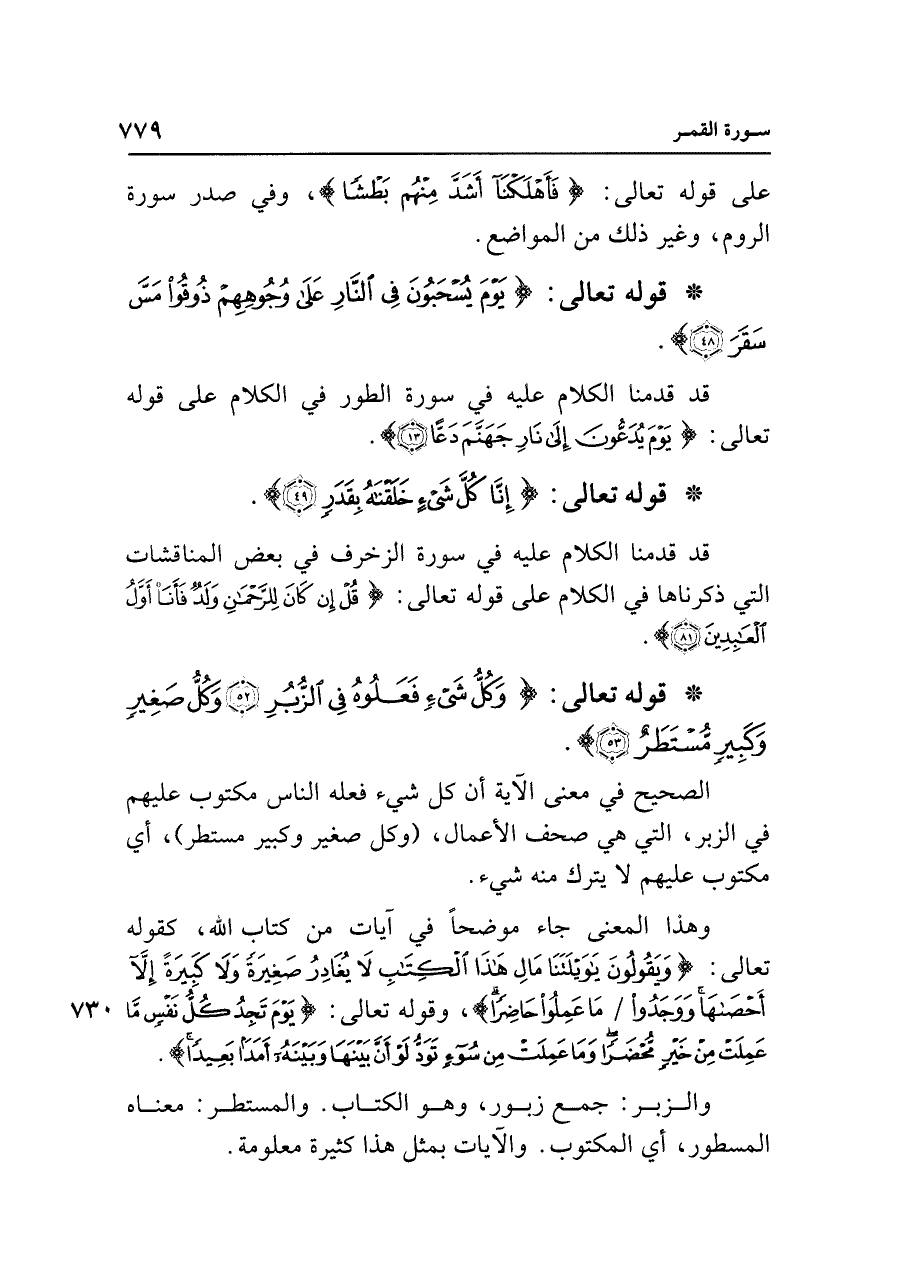 سورة القمر ٧٧٩
على قوله تعالى: ﴿ فَأَهْلَكْنَآ أَشَدَّ مِنْهُم بَطْشًا ﴾، وفي صدر سورة
الروم، وغير ذلك من المواضع.
* قوله تعالى: ﴿ يَوْمَ يُسْحَبُونَ فِى ٱلنَّارِ عَلَىٰ وُجُوهِهِمْ ذُوقُوا۟ مَسَّ
سَقَرَ ٤٨ ﴾.
قد قدمنا الكلام عليه في سورة الطور في الكلام على قوله
تعالى: ﴿ يَوْمَ يُدَعُّونَ إِلَىٰ نَارِ جَهَنَّمَ دَعًّا ١٣ ﴾.
* قوله تعالى: ﴿ إِنَّا كُلَّ شَىْءٍ خَلَقْنَٰهُ بِقَدَرٍ ٤٩ ﴾.
قد قدمنا الكلام عليه في سورة الزخرف في بعض المناقشات
التي ذكرناها في الكلام على قوله تعالى: ﴿ قُلْ إِن كَانَ لِلرَّحْمَٰنِ وَلَدٌ فَأَنَا۠ أَوَّلُ
ٱلْعَٰبِدِينَ ٨١ ﴾.
* قوله تعالى: ﴿ وَكُلُّ شَىْءٍ فَعَلُوهُ فِى ٱلزُّبُرِ ٥٢ وَكُلُّ صَغِيرٍ
وَكَبِيرٍ مُّسْتَطَرٌ ٥٣ ﴾.
الصحيح في معنى الآية أن كل شيء فعله الناس مكتوب عليهم
في الزبر، التي هي صحف الأعمال، (وكل صغير وكبير مستطر)، أي
مكتوب عليهم لا يترك منه شيء.
وهذا المعنى جاء موضحاً في آيات من كتاب الله، كقوله
تعالى: ﴿ وَيَقُولُونَ يَٰوَيْلَتَنَا مَالِ هَٰذَا ٱلْكِتَٰبِ لَا يُغَادِرُ صَغِيرَةً وَلَا كَبِيرَةً إِلَّآ
أَحْصَىٰهَا ۚ وَوَجَدُوا۟ / مَا عَمِلُوا۟ حَاضِرًا ۗ ﴾، وقوله تعالى: ﴿ يَوْمَ تَجِدُ كُلُّ نَفْسٍ مَّا ٧٣٠
عَمِلَتْ مِنْ خَيْرٍ مُّحْضَرًا وَمَا عَمِلَتْ مِن سُوٓءٍ تَوَدُّ لَوْ أَنَّ بَيْنَهَا وَبَيْنَهُۥٓ أَمَدًۢا بَعِيدًا ۗ ﴾.
والـزبـر: جمـع زبـور، وهـو الكتـاب. والمستطـر: معنـاه
المسطور، أي المكتوب. والآيات بمثل هذا كثيرة معلومة.